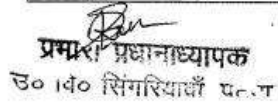 प्रभारी प्रधानाध्यापक
उ० वि० सिंगरियावाँ